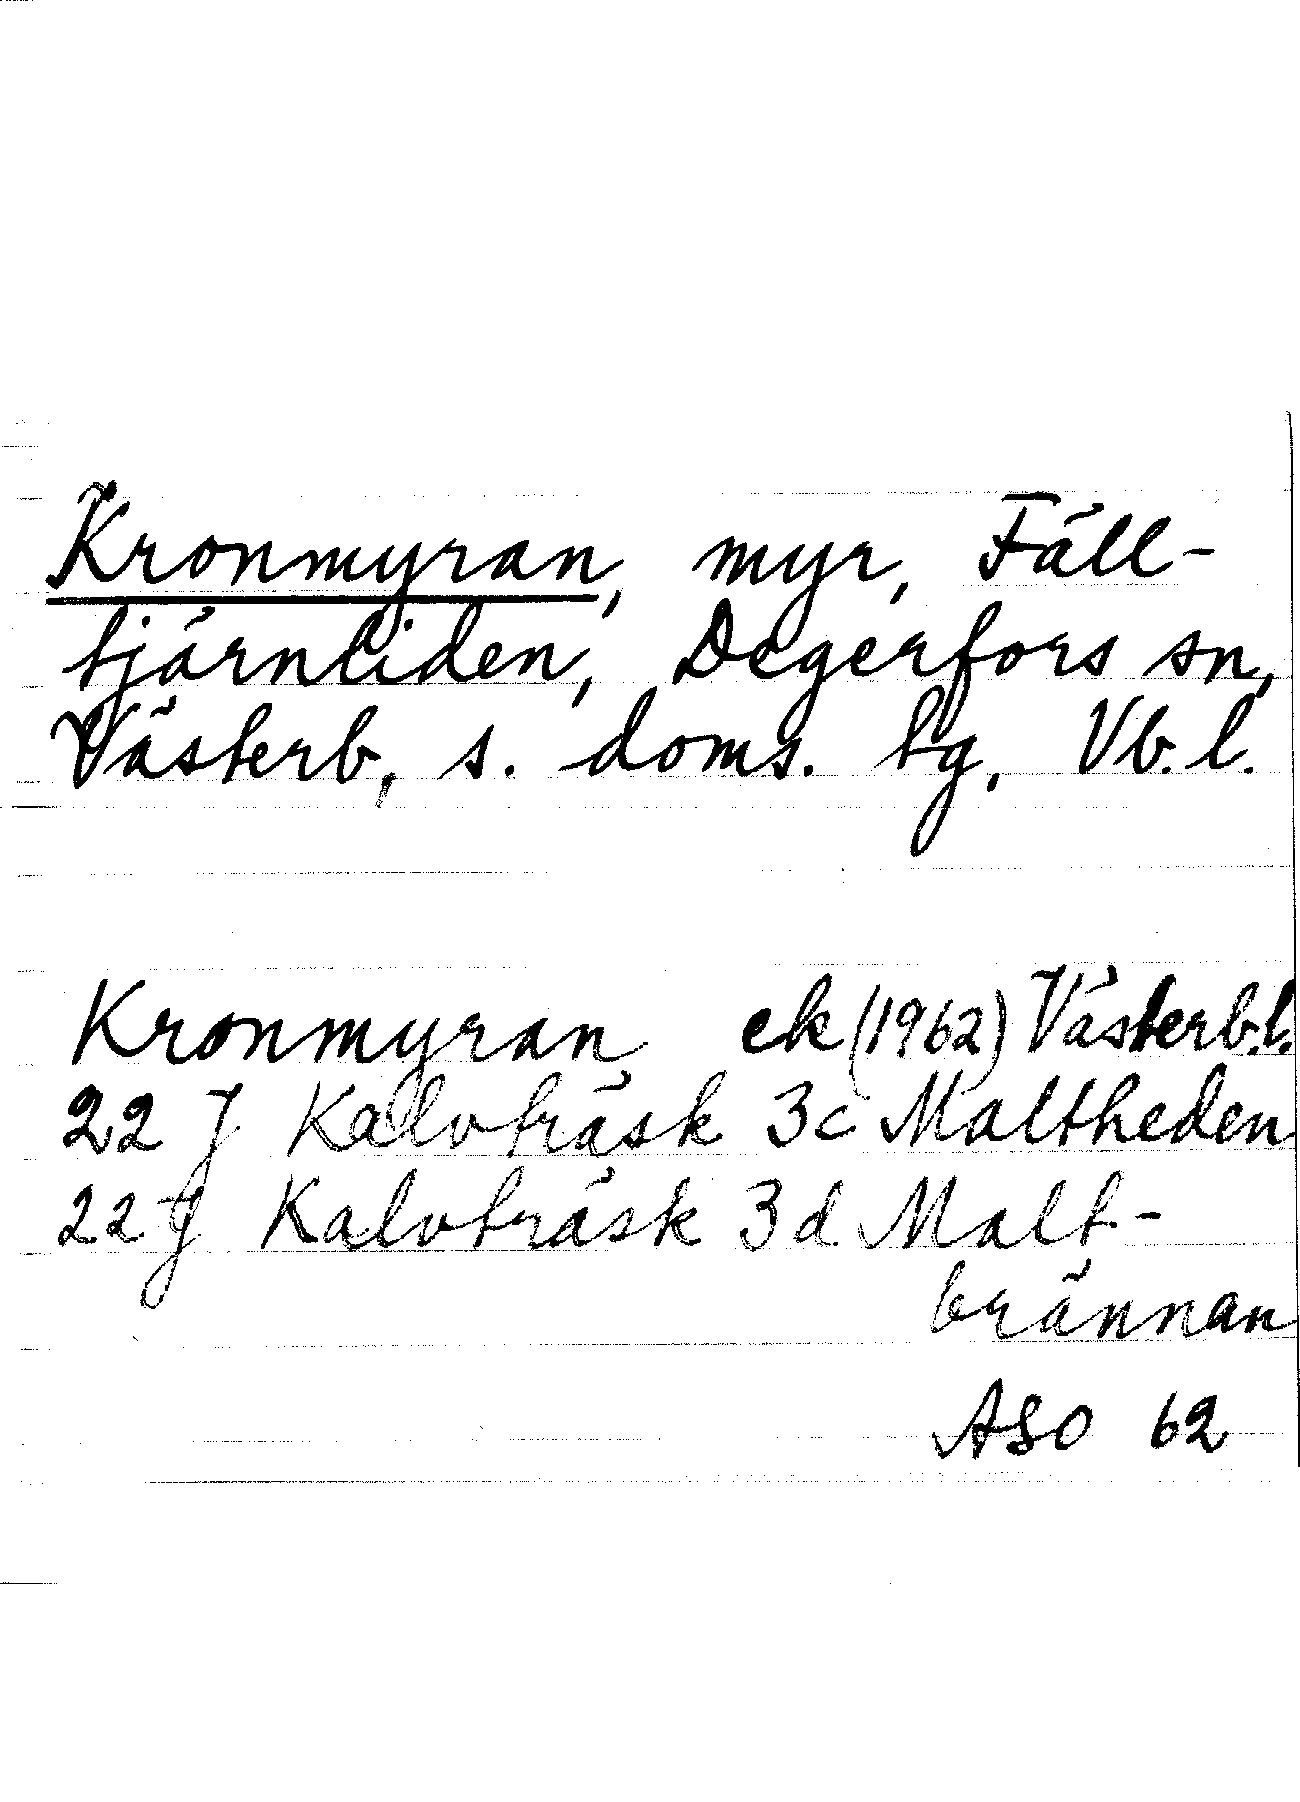 Kronmyran, myr, Fäll-
tjärnliden, Degerfors sn,
Västerb, s. doms. tg, Vb. l.
Kronmyran ek (1962) Västerb.l.
22 J Kalvträsk 3c Maltheden
22 J Kalvträsk 3d Malt-
brännan
ASO 62